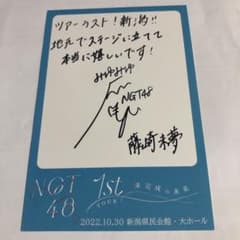 ツアーラスト!新潟!!
地元でステージに立てて
本当に嬉しいです!
みゆみゆ
NGT48
藤崎未夢
NGT
48
1st
TOUR
未完成の未来
2022.10.30 新潟県民会館・大ホール